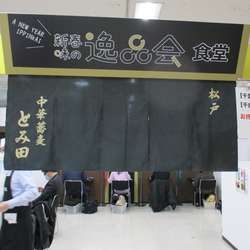 A NEW YEAR
IPPINKAI
新春
味の
逸品会
食堂
松戸
中華蕎麦
とみ田